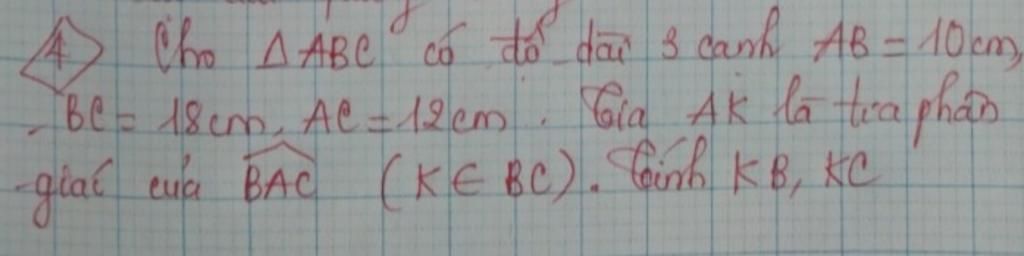 4 Cho Δ ABC có độ dài 3 cạnh AB = 10cm,
BC = 18cm, AC = 12cm. Tia AK là tia phân
giác của BAC (K ∈ BC). Tính KB, KC